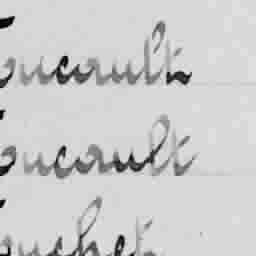 Foucault
Foucault
Fouchet